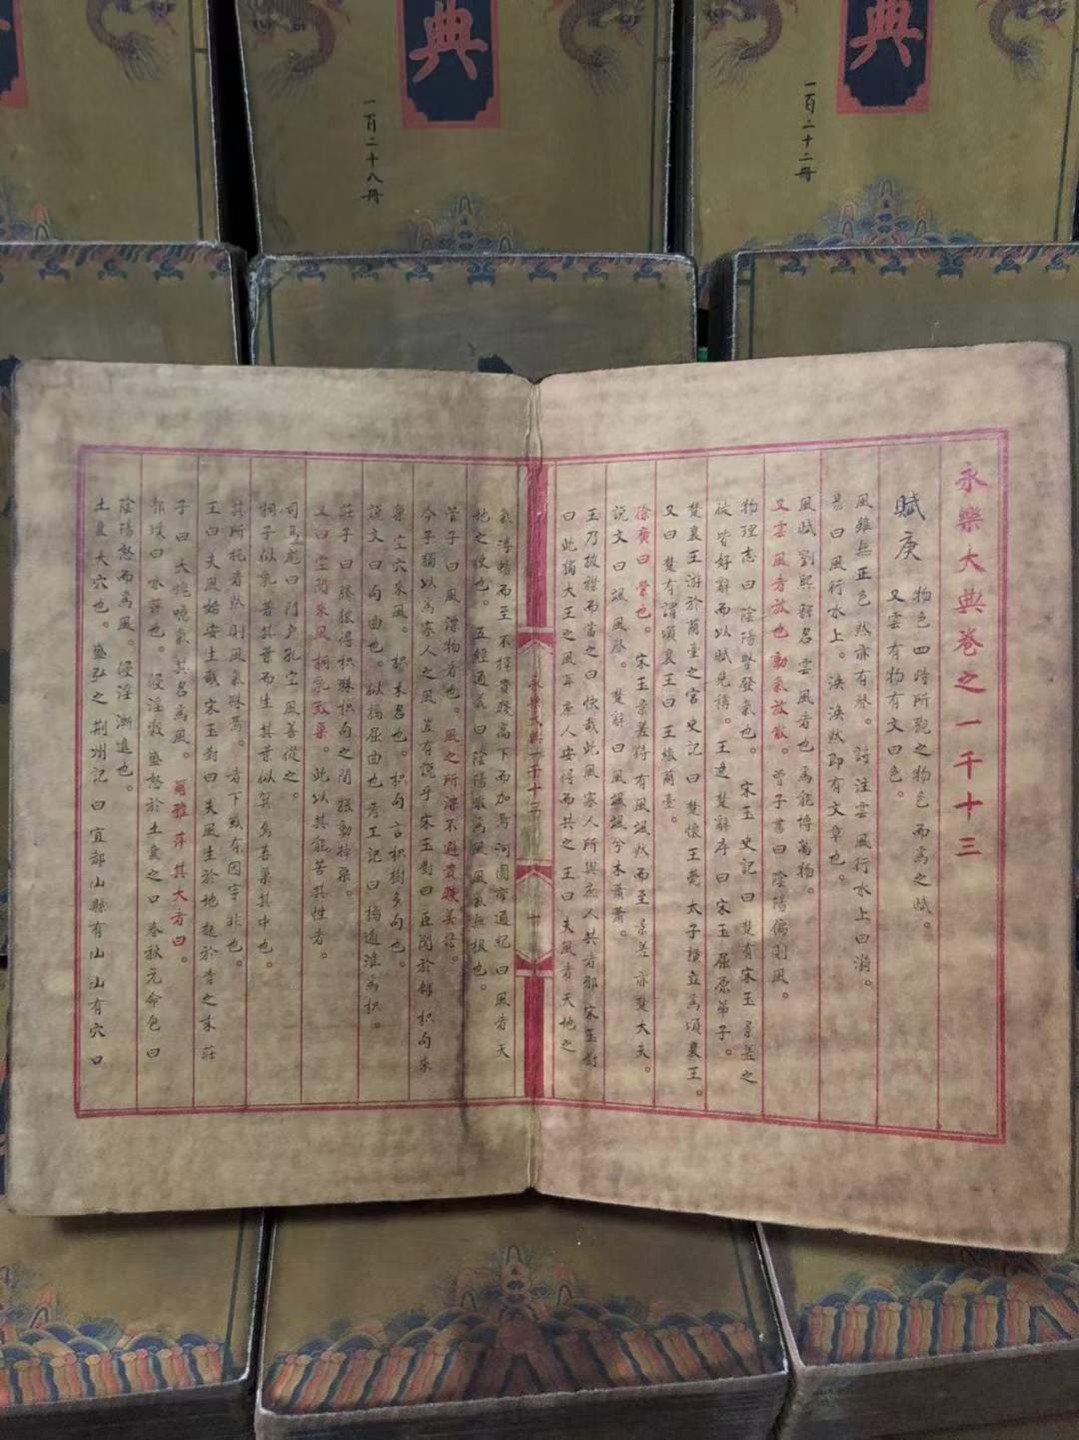 典
一百二十八冊
典
一百二十二冊
永樂大典卷之一千十三
賦庚
物色四時所觀之物色而為之賦。
又雲有物有文曰色。
風雖無正色然亦有聲。詩注雲風行水上曰漪。
易曰風行水上。渙渙然即有文章也。
風賦劉熙釋名雲風者也為能博萬物。
又雲風者放也動氣放散。管子書曰陰陽傷則風。
物理志曰陰陽擊發氣也。宋玉史記曰楚有宋玉景差之
徒皆好辭而以賦見稱。王逸楚辭序曰宋玉屈原弟子。
楚襄王游於蘭臺之宮史記曰楚懷王薨太子橫立為頃襄王。
又曰楚有謂頃襄王曰王績蘭臺。
徐廣曰縈也。宋玉景差侍有風颯然而至景差亦楚大夫。
說文曰颯風聲。楚辭曰風颯颯兮木蕭蕭。
王乃披襟而當之曰快哉此風寡人所與庶人共者邪宋玉對
曰此獨大王之風耳庶人安得而共之王曰夫風者天地之
永樂大典一千十三
十
氣溥暢而至不擇貴賤高下而加焉河圖帝通紀曰風者天
地之使也。五經通義曰陰陽散為風風氣無根也。
管子曰風漂物者也。風之所漂不避貴賤美惡。
今子獨以為寡人之風豈有說乎宋玉對曰臣聞於師枳句來
巢空穴來風。枳木名也。枳句言枳樹多句也。
說文曰句曲也。似橘屈曲也考工記曰橘逾淮為枳。
莊子曰騰猿得枳棘枳句之間振動悼栗。
又曰空閱來風桐乳致巢。此以其能苦其性者。
司馬彪曰門戶孔空風善從之。
桐子似乳著其葉而生其葉似箕鳥喜巢其中也。
其所托者然則風氣殊焉。
王曰夫風始安生哉宋玉對曰夫風生於地起於青之末莊
子曰大塊噫氣其名為風。爾雅萍其大者曰。
郭璞曰水萍也。侵淫谿盛怒於土囊之口春秋元命包曰
陰陽怒而為風。侵淫漸進也。
土囊大穴也。盛弘之荊州記曰宜都山縣有山山有穴口